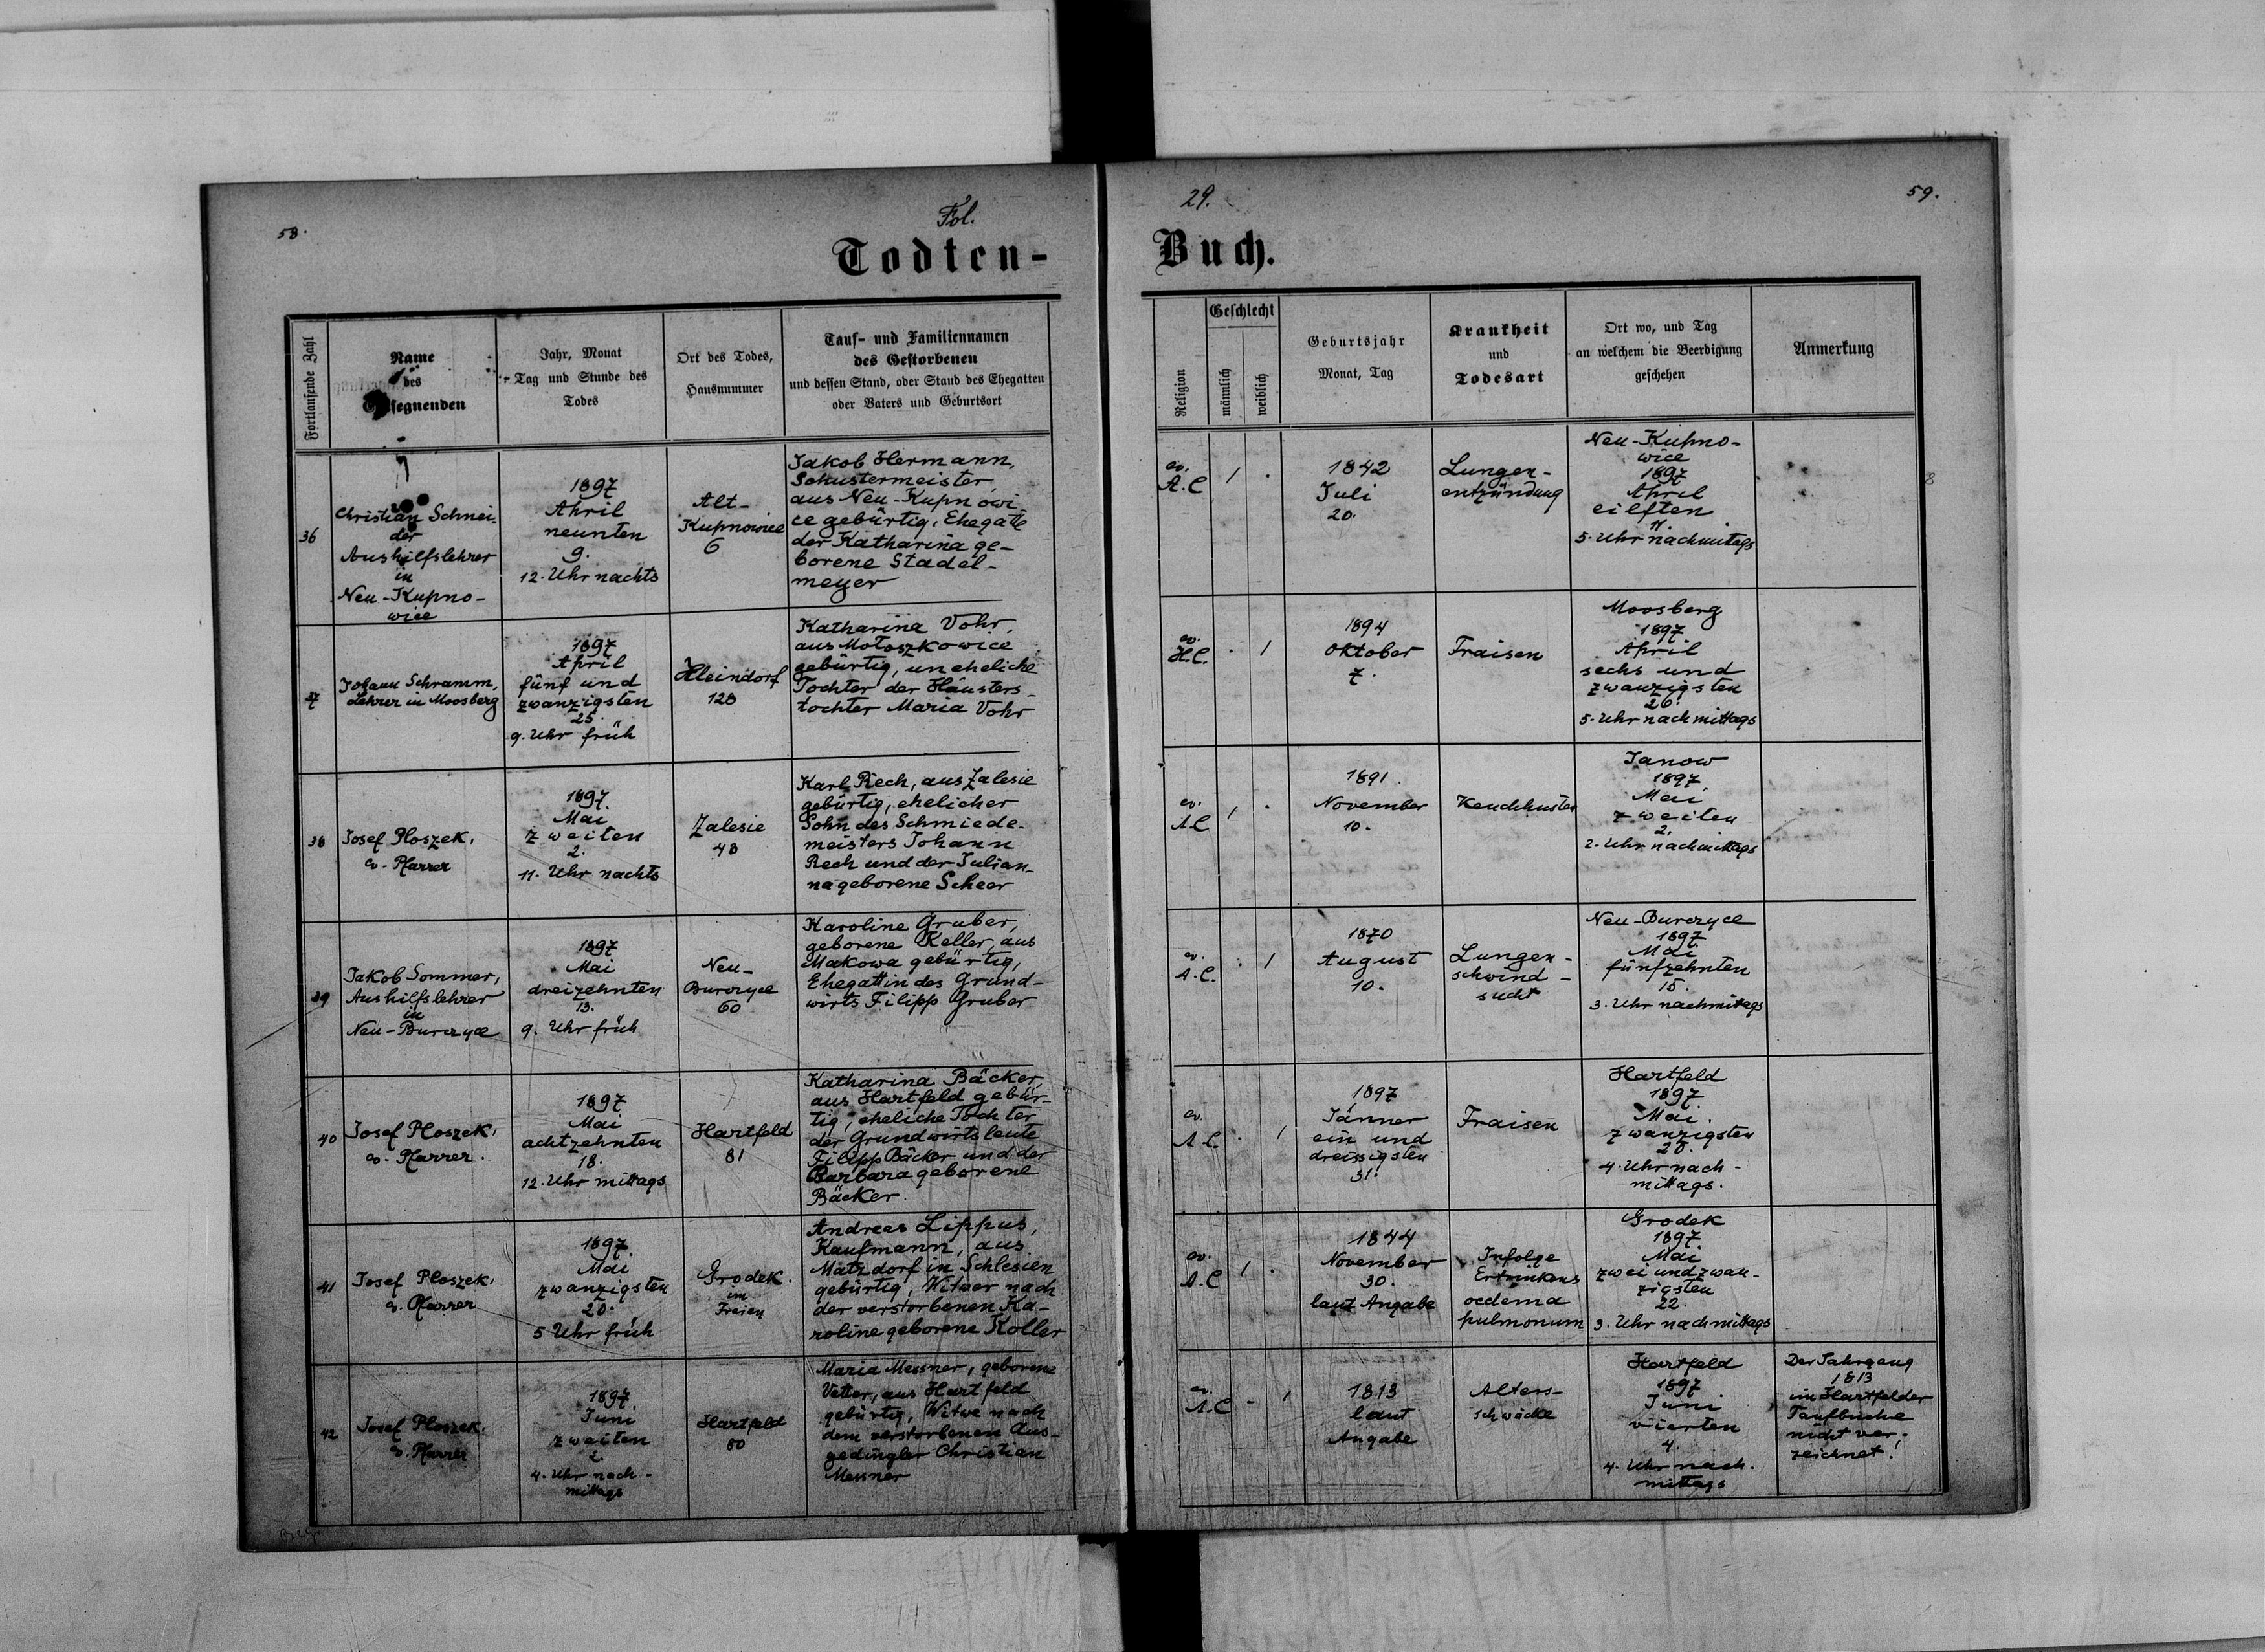 58.
Fol.
29.
59.
Todten-
Buch.
Fortlaufende Zahl
Name
des
segnenden
Jahr, Monat
Tag und Stunde des
Todes
Ort des Todes,
Hausnummer
Tauf- und Familiennamen
des Gestorbenen
und dessen Stand, oder Stand des Ehegatten
oder Vaters und Geburtsort
Religion
Geschlecht
männlich
weiblich
Geburtsjahr
Monat, Tag
Krankheit
und
Todesart
Ort wo, und Tag
an welchem die Beerdigung
geschehen
Anmerkung
36
Christian Schnei-
der
Aushilfslehrer
in
Neu-Kupno-
wice
1897
April
neunten
9.
12. Uhr nachts
Alt-
Kupnowice
6
Jakob Hermann,
Schustermeister,
aus Neu-Kupnowi-
ce gebürtig, Ehegatte
der Katharina ge-
borene Stadel-
meyer
ev.
A.C
1
.
1842
Juli
20.
Lungen-
entzündung
Neu-Kupno-
wice
1897
April
eilften
11.
5. Uhr nachmitags
37
Johann Schramm,
Lehrer in Moosberg
1897
April
fünf und
zwanzigsten
25.
9. Uhr früh
Kleindorf
128
Katharina Vohr,
aus Motoszkowice
gebürtig, uneheliche
Tochter der Häusters-
tochter Maria Vohr
ev.
H.C.
.
1
1894
Oktober
7.
Fraisen
Moosberg
1897
April
sechs und
zwanzigsten
26.
5. Uhr nachmittags
38
Josef Ploszek,
ev. Pfarrer
1897.
Mai
zweiten
2.
11. Uhr nachts
Zalesie
48
Karl Rech, aus Zalesie
gebürtig, ehelicher
Sohn des Schmiede-
meisters Johann
Rech und der Julian-
na geborene Scheer
ev.
A.C
1
.
1891.
November
10.
Keuchhusten
Janow
1897.
Mai
zweiten
2.
2. Uhr nachmittags
39
Jakob Sommer,
Aushilfslehrer
in
Neu-Burczyce
1897
Mai
dreizehnten
13.
9. Uhr früh
Neu-
Burczyce
60
Karoline Gruber,
geborene Keller, aus
Makowa gebürtig,
Ehegattin des Grund-
wirts Filipp Gruber
ev.
A.C.
.
1
1870
August
10.
Lungen-
schwind-
sucht
Neu-Burczyce
1897
Mai
fünfzehnten
15.
3. Uhr nachmittags
40
Josef Ploszek,
ev. Pfarrer.
1897
Mai
achtzehnten
18.
12. Uhr mittags
Hartfeld
81
Katharina Bäcker,
aus Hartfeld gebür-
tig, eheliche Tochter
der Grundwirtsleute
Filipp Bäcker und der
Barbara geborene
Bäcker.
ev.
A.C.
.
1
1897
Jänner
ein und
dreissigsten
31.
Fraisen
Hartfeld
1897
Mai.
zwanzigsten
20.
4. Uhr nach-
mittags.
41
Josef Ploszek,
ev. Pfarrer
1897.
Mai
zwanzigsten
20.
5 Uhr früh
Grodek.
im
Freien
Andreas Lippus,
Kaufmann, aus
Mätzdorf in Schlesien
gebürtig, Witwer nach
der verstorbenen Ka-
roline geborene Koller
ev.
A.C
1
.
1844
November
30.
laut Angabe
Infolge
Ertrinkens
oedema
pulmonum
Grodek
1897
Mai
zwei und zwan-
zigsten
22.
3. Uhr nachmittags
42
Josef Ploszek.
ev. Pfarrer
1897.
Juni
zweiten
2.
4. Uhr nach-
mittags
Hartfeld
60
Maria Messner, geborene
Vetter, aus Hartfeld
gebürtig, Witwe nach
dem verstorbenen Aus-
gedingler Christian
Messner
ev.
A.C
-
1
1813
laut
Angabe
Alters-
schwäche
Hartfeld
1897
Juni
vierten
4.
4. Uhr nach-
mittags
Der Jahrgang
1813
im Hartfelder
Taufbuche
nicht ver-
zeichnet!